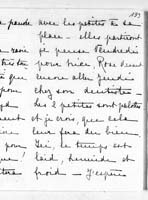 193
pande avec les petites à sa
place – elles partiront
ravie je pense Vendredi
pour Nice, Rose devant
que encore aller Jeudi
chez son dentiste –
les 2 petites sont pâlottes
et je crois que cela
leur fera du bien
pour Ici, le temps est
laid, humide et
froid – J'espère